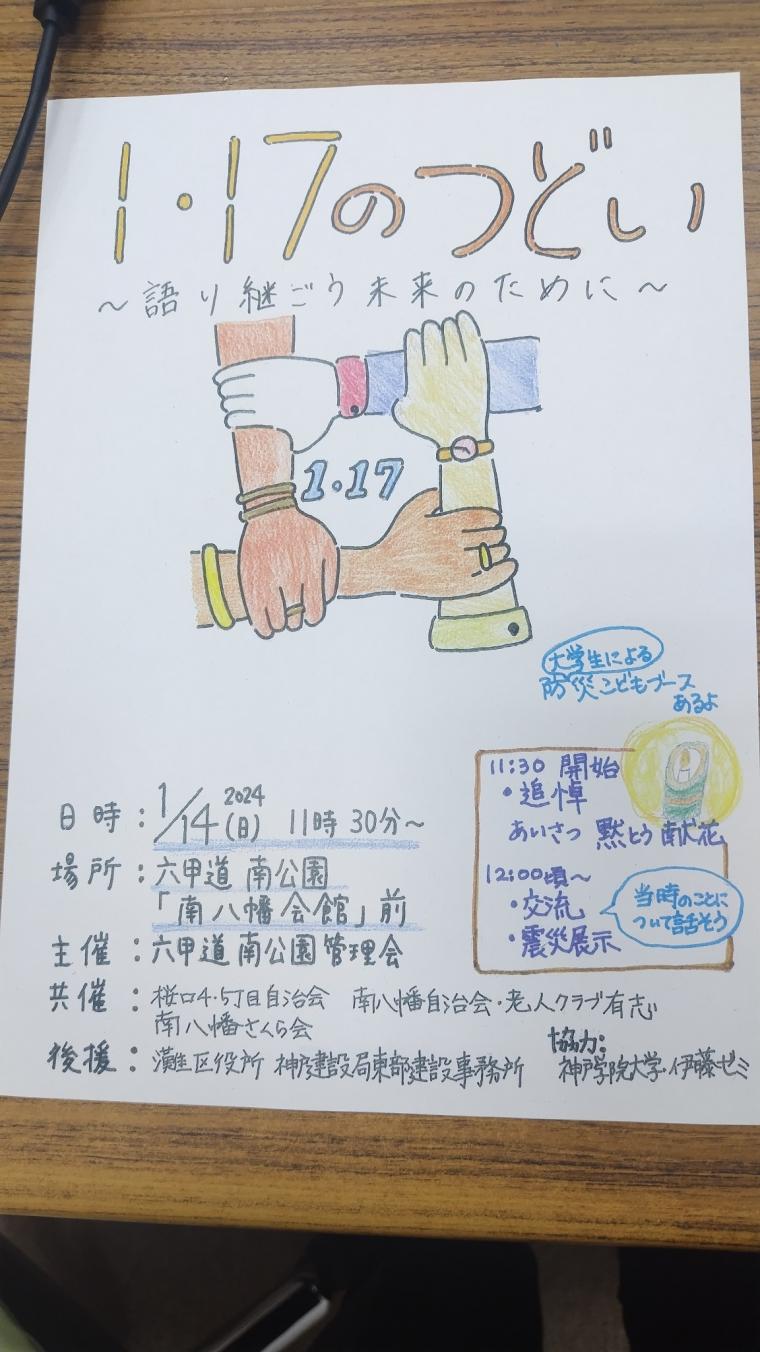 1・17のつどい
～語り継ごう未来のために～
1.17
大学生による
防災こどもブース
あるよ
日時：1/14(日) 2024 11時30分～
場所：六甲道南公園
「南八幡会館」前
主催：六甲道南公園管理会
共催：桜口4.5丁目自治会 南八幡自治会・老人クラブ有志
南八幡さくら会
後援：灘区役所 神戸建設局東部建設事務所
協力：
神戸学院大学・伊藤ゼミ
11:30 開始
・追悼
あいさつ 黙とう 献花
12:00頃～
・交流
・震災展示
当時のことに
ついて話そう